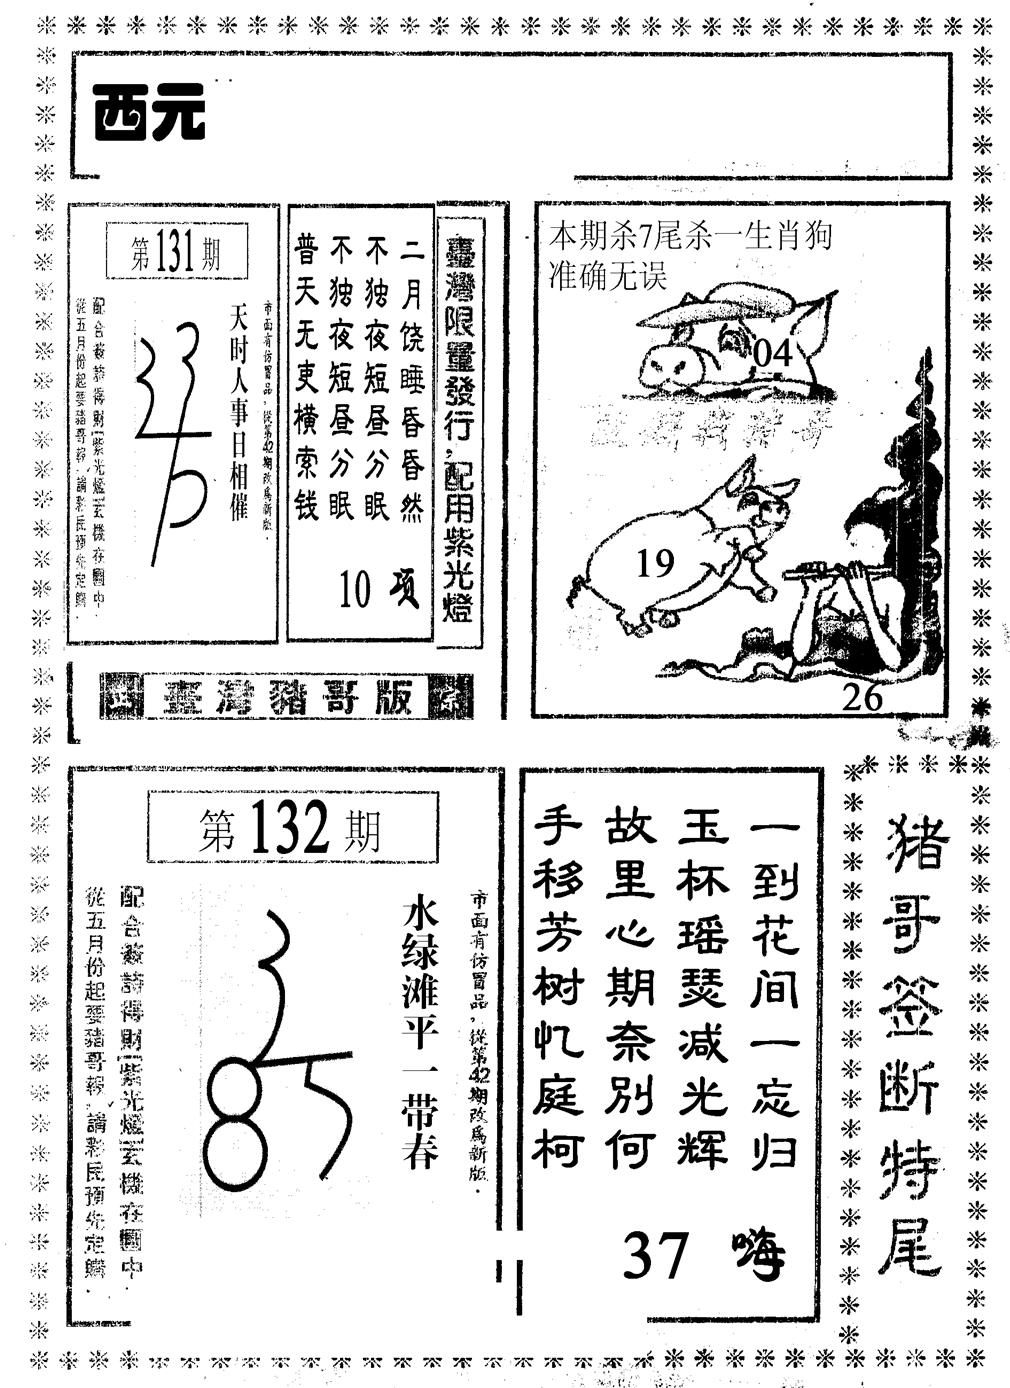 西元
第131期
市面有仿冒品，從第42期改為新版．
天时人事日相催
配合簽詩得財 紫光燈 玄機在圖中
從五月份起要豬哥報 請彩民預先定購
臺灣限量發行，配用紫光燈
二月饶睡昏昏然
不独夜短昼分眠
不独夜短昼分眠
普天无吏横索钱
10 项
臺灣豬哥版
本期杀7尾杀一生肖狗
准确无误
04
19
26
第132期
市面有仿冒品，從第42期改為新版．
水绿滩平一带春
配合簽詩得財 紫光燈 玄機在圖中
從五月份起要豬哥報 請彩民預先定購
一到花间一忘归
玉杯瑶瑟减光辉
故里心期奈别何
手移芳树忆庭柯
37 嗨
猪哥签断特尾